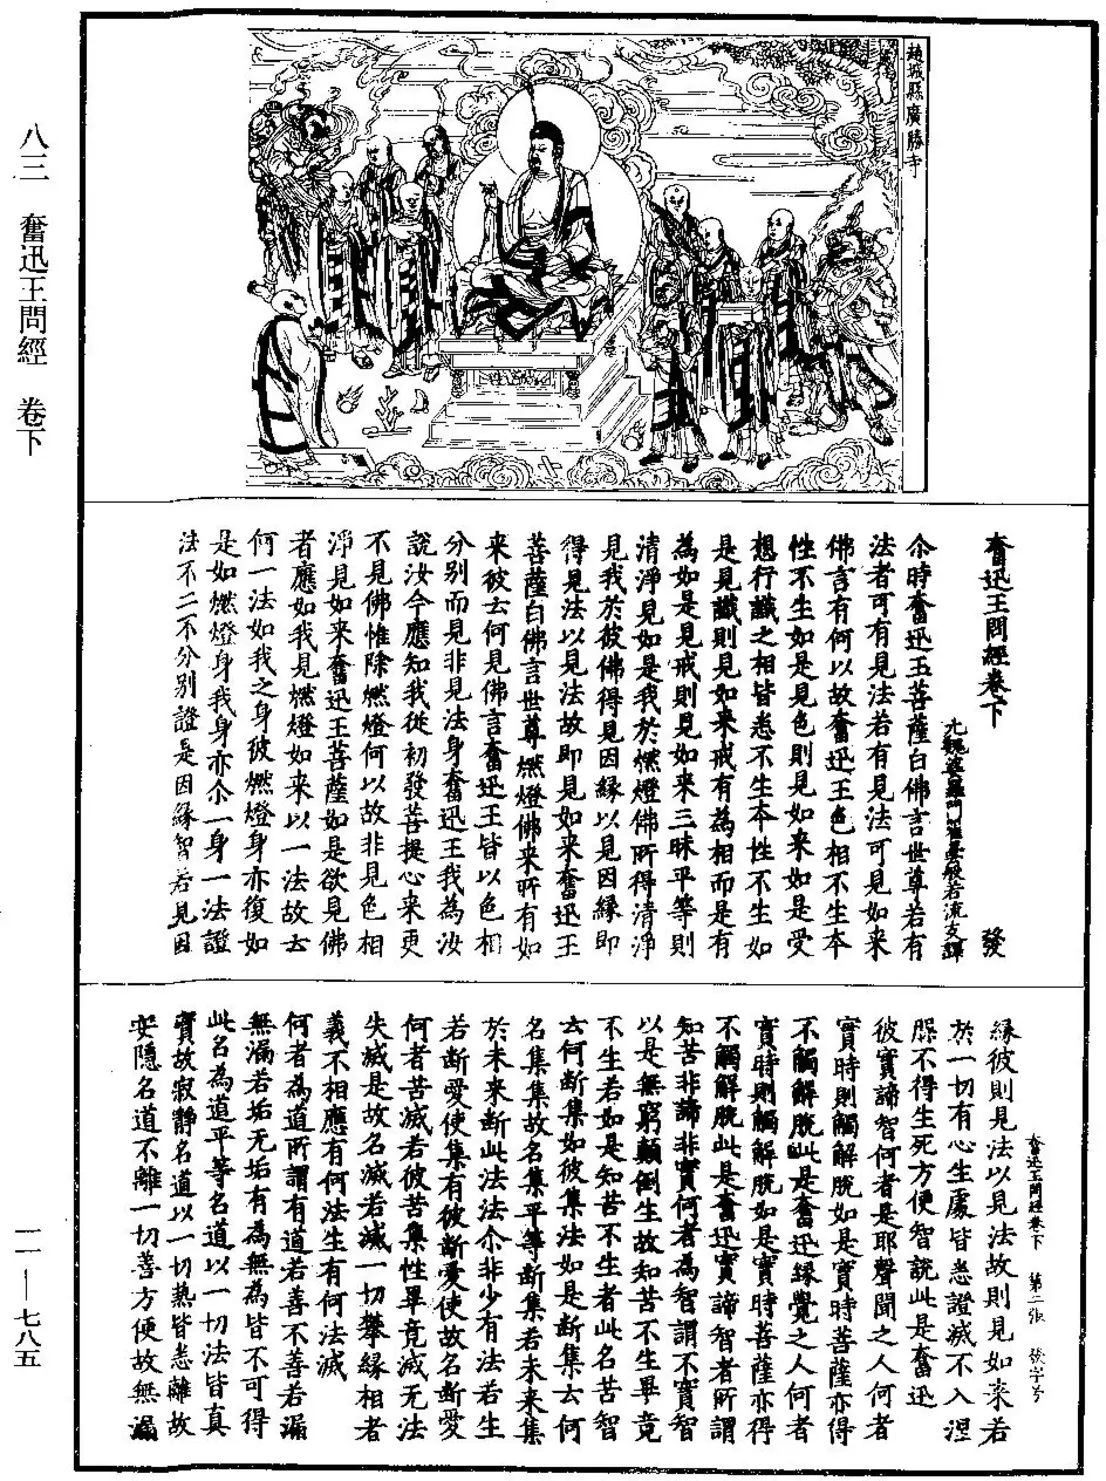 趙城縣廣勝寺
奮迅王問經卷下 發
元魏婆羅門瞿曇般若流支譯
尒時奮迅王菩薩白佛言世尊若有
法者可有見法若有見法可見如来
佛言有何以故奮迅王色相不生本
性不生如是見色則見如来如是受
想行識之相皆悉不生本性不生如
是見識則見如来戒有為相而是有
為如是見戒則見如来三昧平等則
清淨見如是我於燃燈佛所得清淨
見我於彼佛得見因緣以見因緣即
得見法以見法故即見如来奮迅王
菩薩白佛言世尊燃燈佛来所有如
来彼去何見佛言奮迅王皆以色相
分別而見非見法身奮迅王我為汝
說汝今應知我從初發菩提心来更
不見佛惟除燃燈何以故非見色相
淨見如来奮迅王菩薩如是欲見佛
者應如我見燃燈如来以一法故去
何一法如我之身彼燃燈身亦復如
是如燃燈身我身亦尒一身一法證
法不二不分別證是因緣智若見因
奮迅王問經卷下 第二張 發字号
緣彼則見法以見法故則見如来若
於一切有心生處皆悉證滅不入涅
槃不得生死方便智說此是奮迅
彼實諦智何者是耶聲聞之人何者
實時則觸解脫如是實時菩薩亦得
不觸解脫此是奮迅緣覺之人何者
實時則觸解脫如是實時菩薩亦得
不觸解脫此是奮迅實諦智者所謂
知苦非諦非實何者為智謂不實智
以是無窮顛倒生故知苦不生畢竟
不生若如是知苦不生者此名苦智
去何斷集如彼集法如是斷集去何
名集集故名集平等斷集若未来集
於未来斷此法法尒非少有法若生
若斷愛使集有彼斷愛使故名斷愛
何者苦滅若彼苦集性畢竟滅无法
失滅是故名滅若滅一切攀緣相者
義不相應有何法生有何法滅
何者為道所謂有道若善不善若漏
無漏若垢无垢有為無為皆不可得
此名為道平等名道以一切法皆真
實故寂靜名道以一切熱皆悉離故
安隱名道不離一切善方便故無漏
八三 奮迅王問經 卷下
一一—七八五